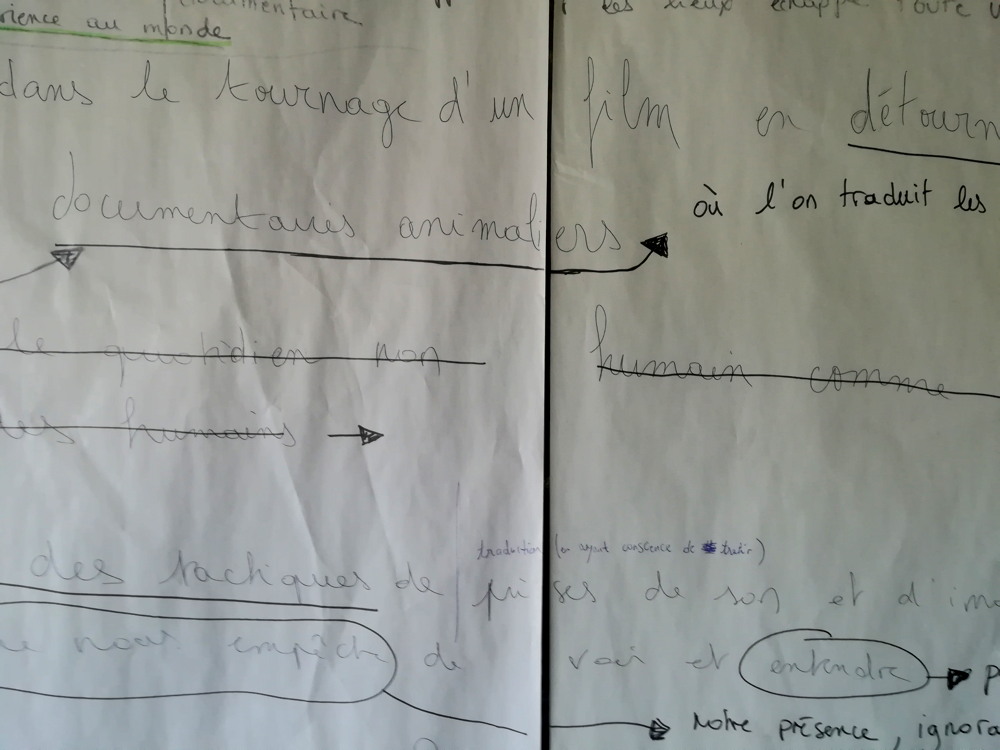 documentaire
rience au monde
dans le tournage d'un film en détourn
documentaires animaliers où l'on traduit les
le quotidien non humain comme
les humains
traduction (en ayant conscience de trahir)
des tactiques de prises de son et d'ima
nous empêche de voir et entendre
notre présence, ignora